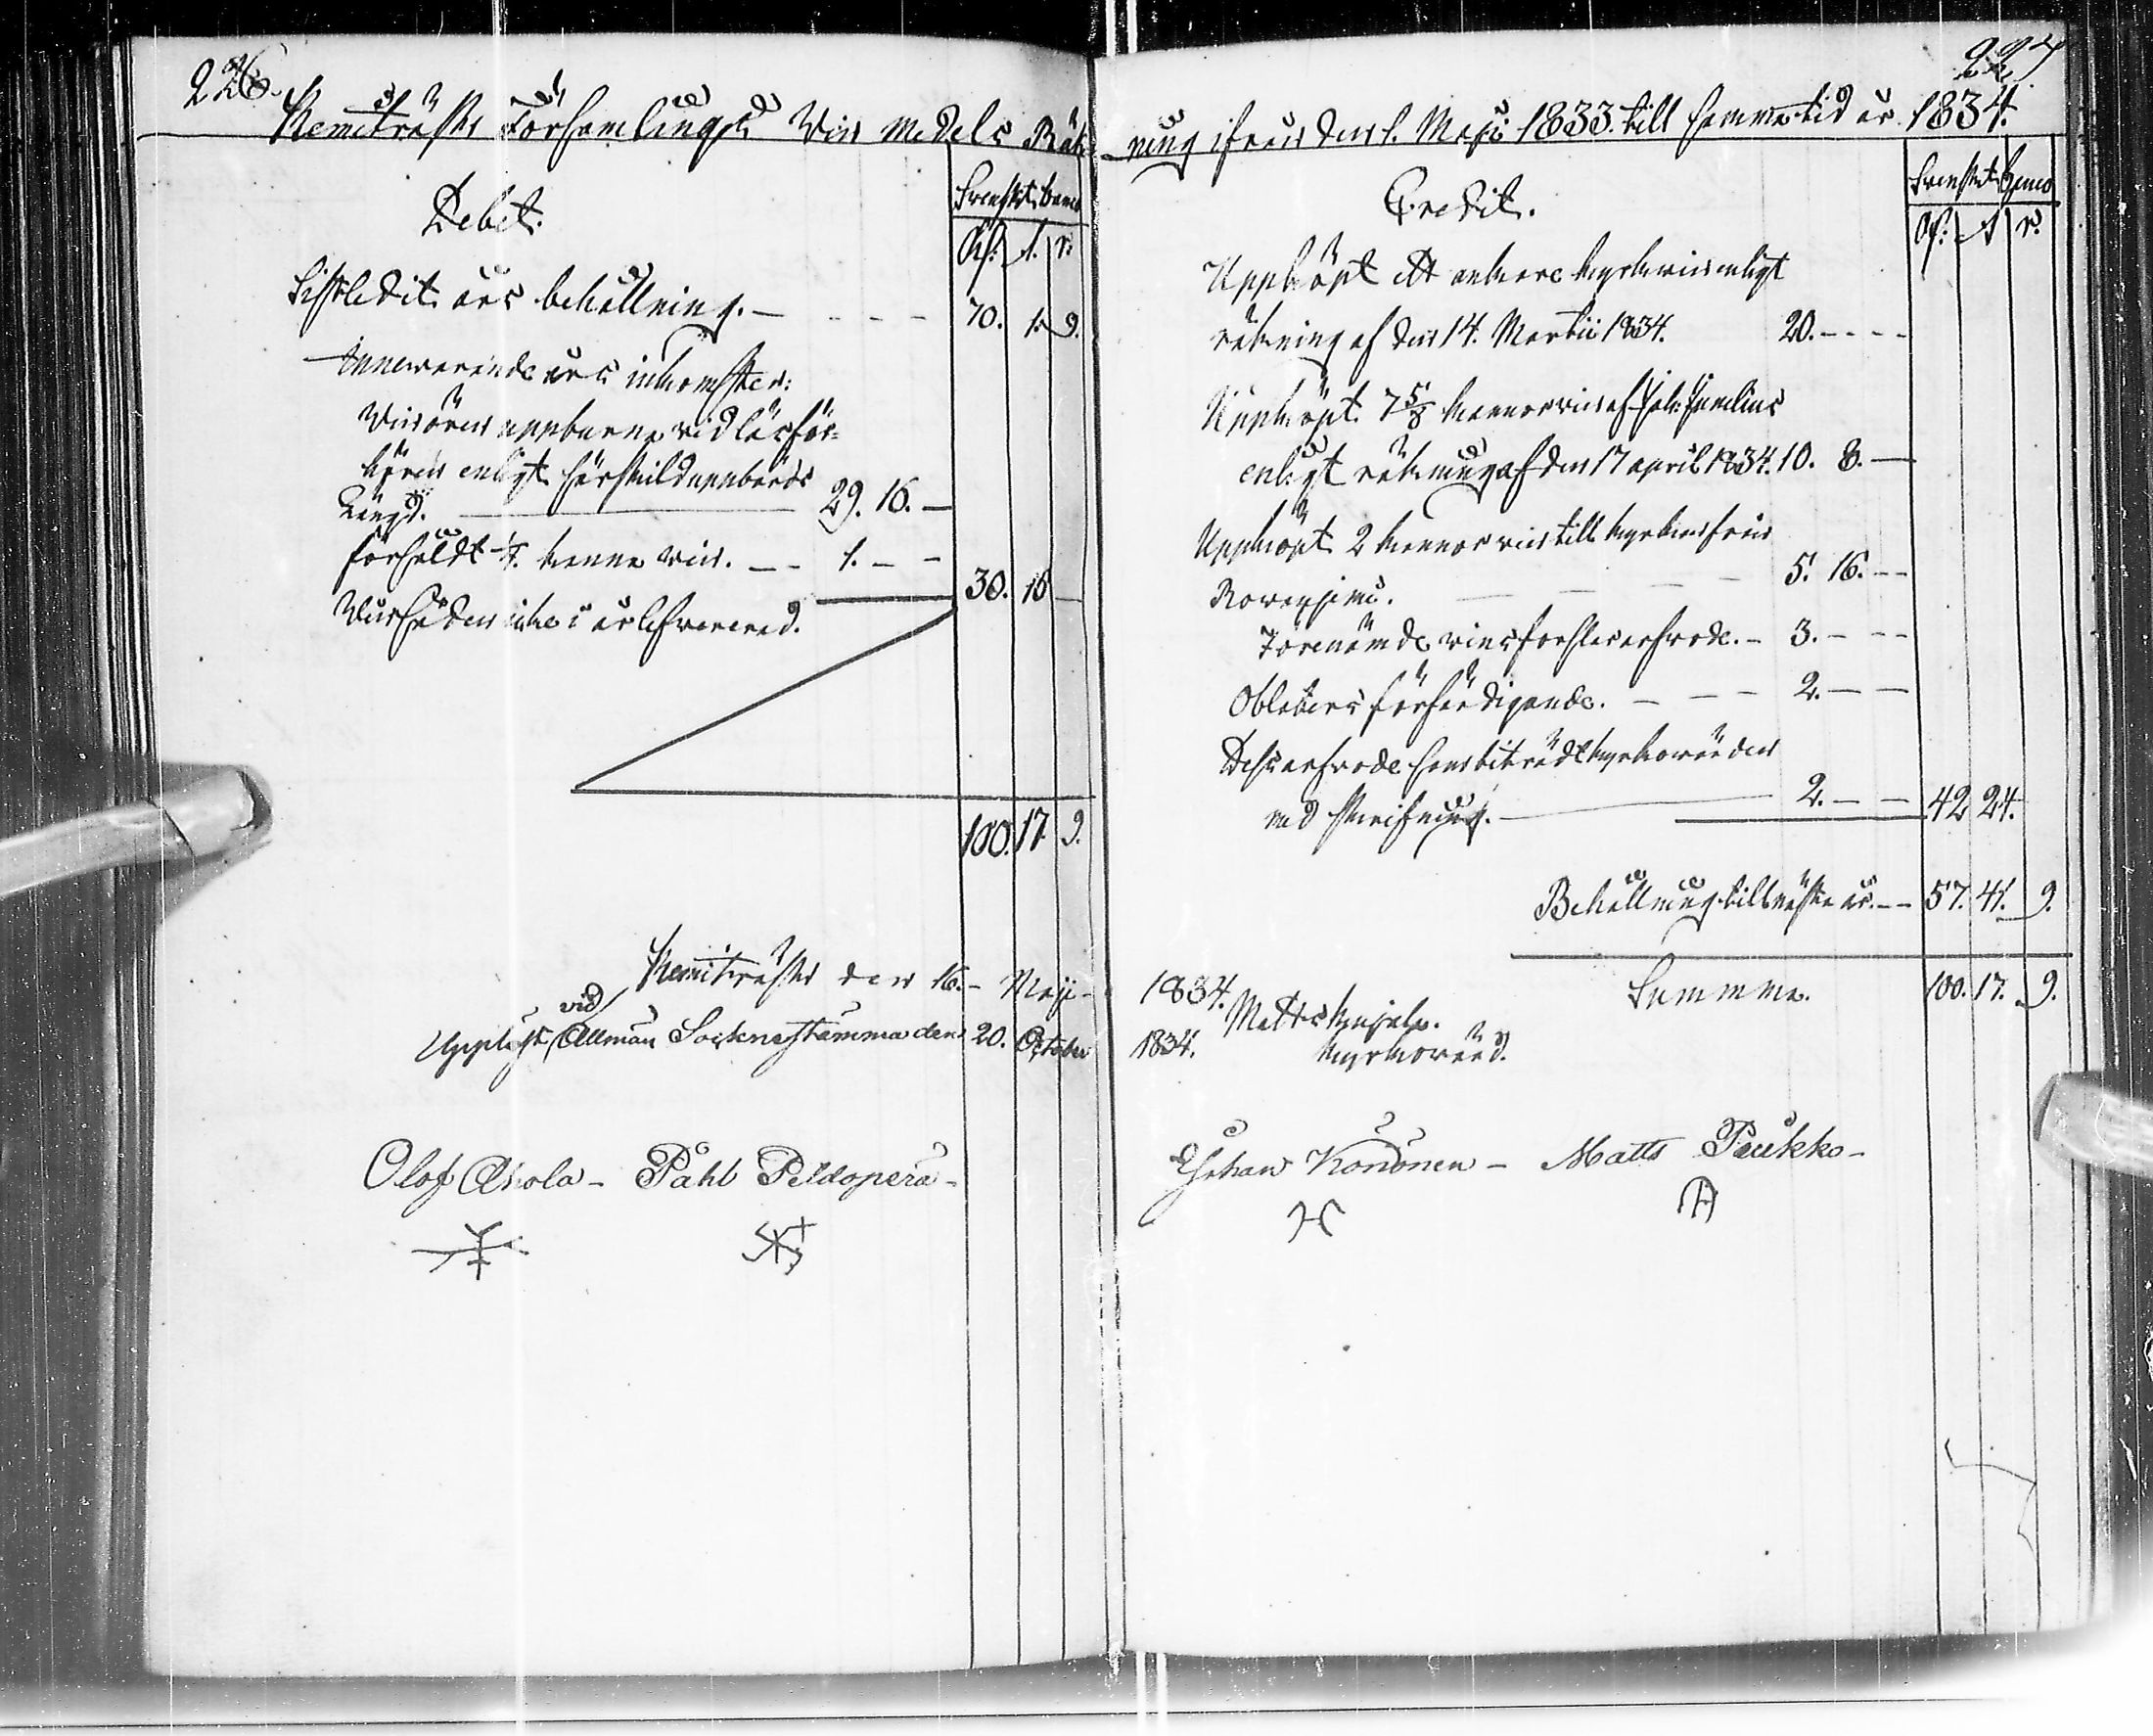 226.
Kemiträsks Församlings Vin medels Räk-
Debet.
Svenskt banco
Rd. s. r.
Sistledit års behållning. — - - - 70. 1. 9.
Innevarande års inkomster:
Vinören uppburne vid läsför-
hören enligt särskild uppbörds
Längd. — 29. 16. —
försåldt kanna vin. — - 1. — -
30. 16 —
Vinsäden icke i år lefvererad.
100. 17. 9.
Kemiträsk den 16. - Maji -
Uppläst vid Allmän Socknestämma den 20. October
Olof Ahola - Påhl Peldoperä -
227
ning ifrån den 1. Maji 1833. till samma tid år 1834.
Credit.
Svenskt Banco
Rd. s r.
Uppköpt ett ankare kyrkovin enligt
räkning af den 14. Martii 1834. 20. - - - -
Uppköpt 7 5/8 kannor vin af
enligt räkning af den 17 april 1834. 10. 8. —
Uppköpt 2 kannor vin till kyrkan från
Rovaniemi. — — — 5. 16. - -
Förenämde vins forslararfvode. - 3. - - -
Oblaters förfärdigande. — - - - 2. — —
Dess arfvode som biträdt kyrkovärden
med skrifning. — 2. — — 42 24.
Behållning till nästa år. - - 57. 41. 9.
1834. Summa. 100. 17. 9.
Matts
1834. Kyrkovärd.
Johan Kononen - Matts Paukko -